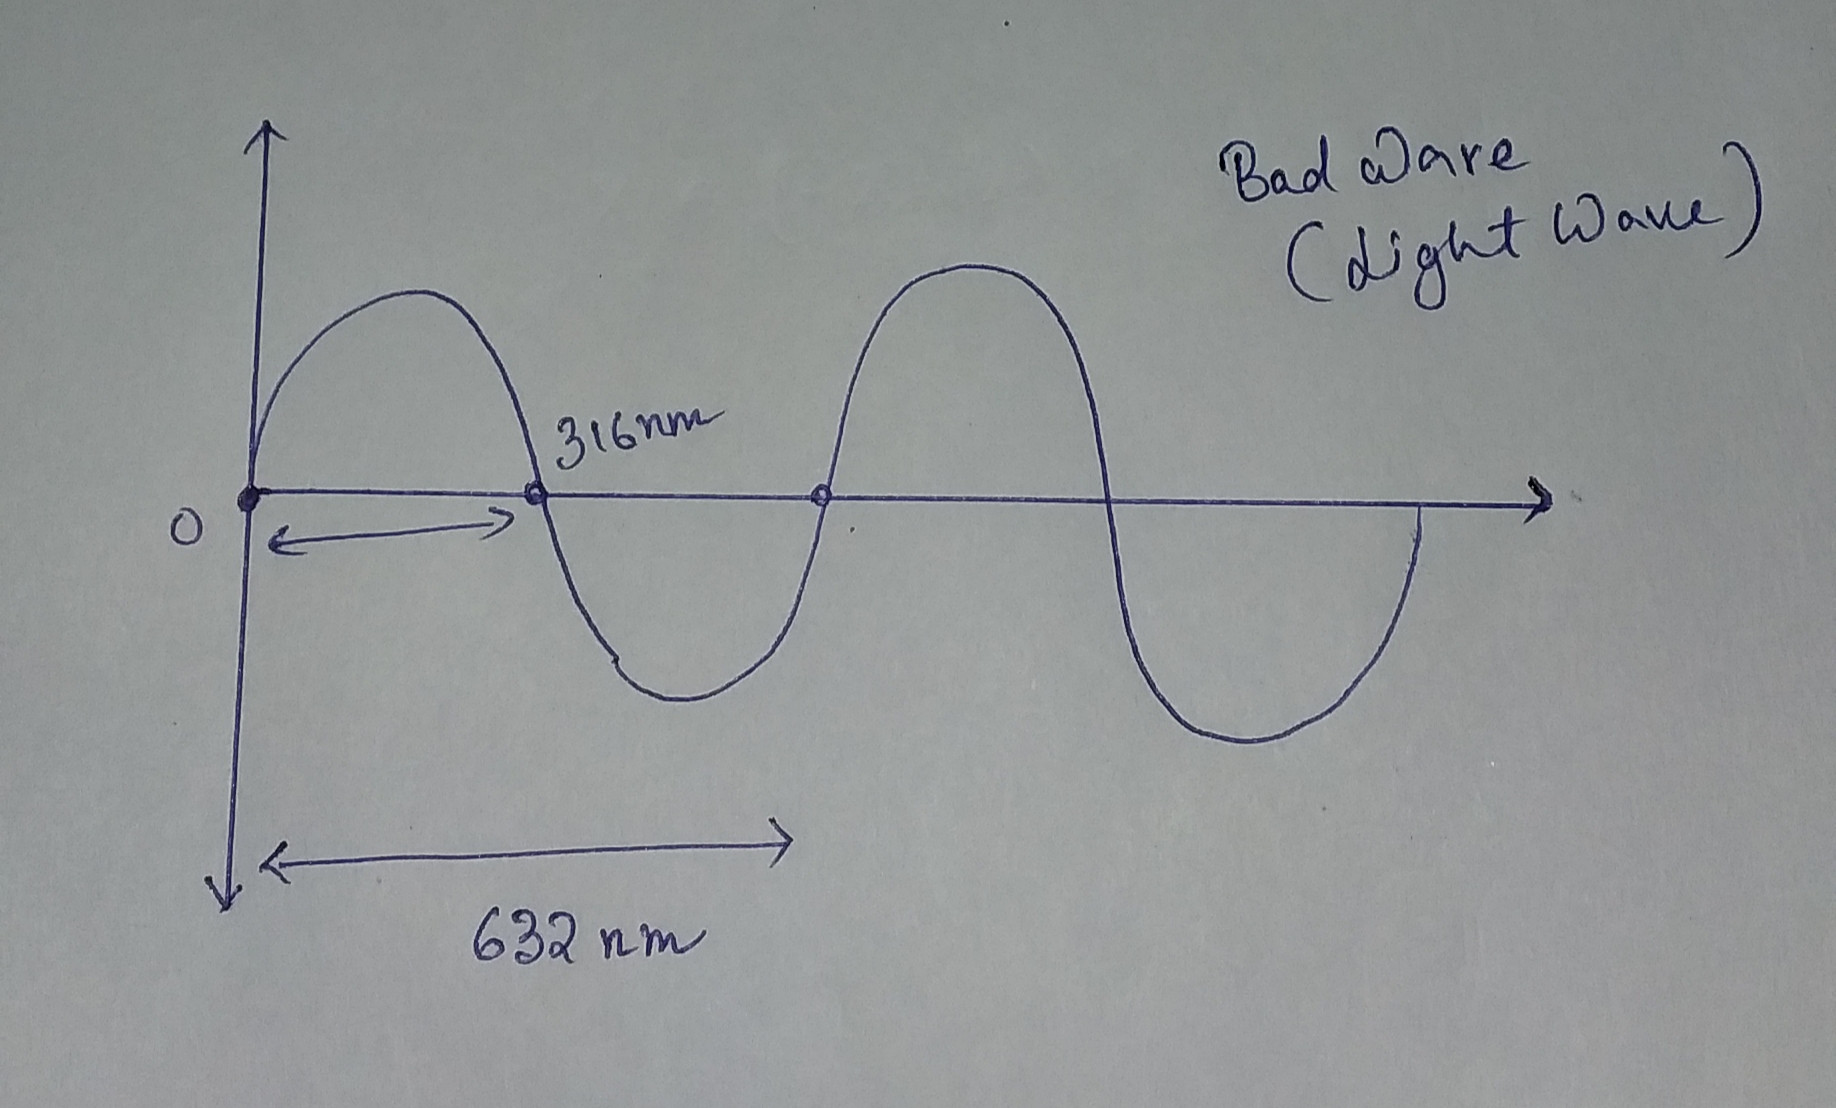 Bad Wave
(Light Wave)
316nm
0
632 nm